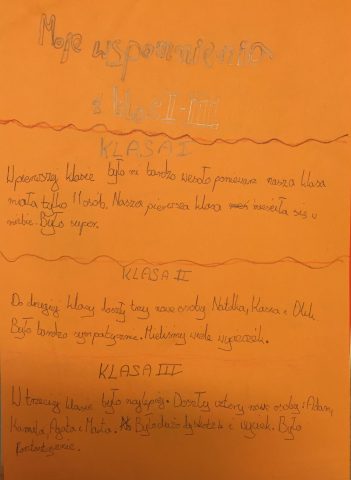 Moje wspomnienia
z klas I-III
KLASA I
W pierwszej klasie było mi bardzo wesoło ponieważ nasza klasa
miała tylko 11 osób. Nasza pierwsza klasa mieściła się u
niebie. Było super.
KLASA II
Do drugiej klasy doszły trzy nowe osoby Natalka, Kacra i Olek.
Było bardzo sympatycznie. Mieliśmy wiele wycieczek.
KLASA III
W trzeciej klasie było najlepiej. Doszły cztery nowe osoby: Adam,
Kamila, Agata i Marta. Było dużo dyskotek i wycieczek. Było
fantastycznie.